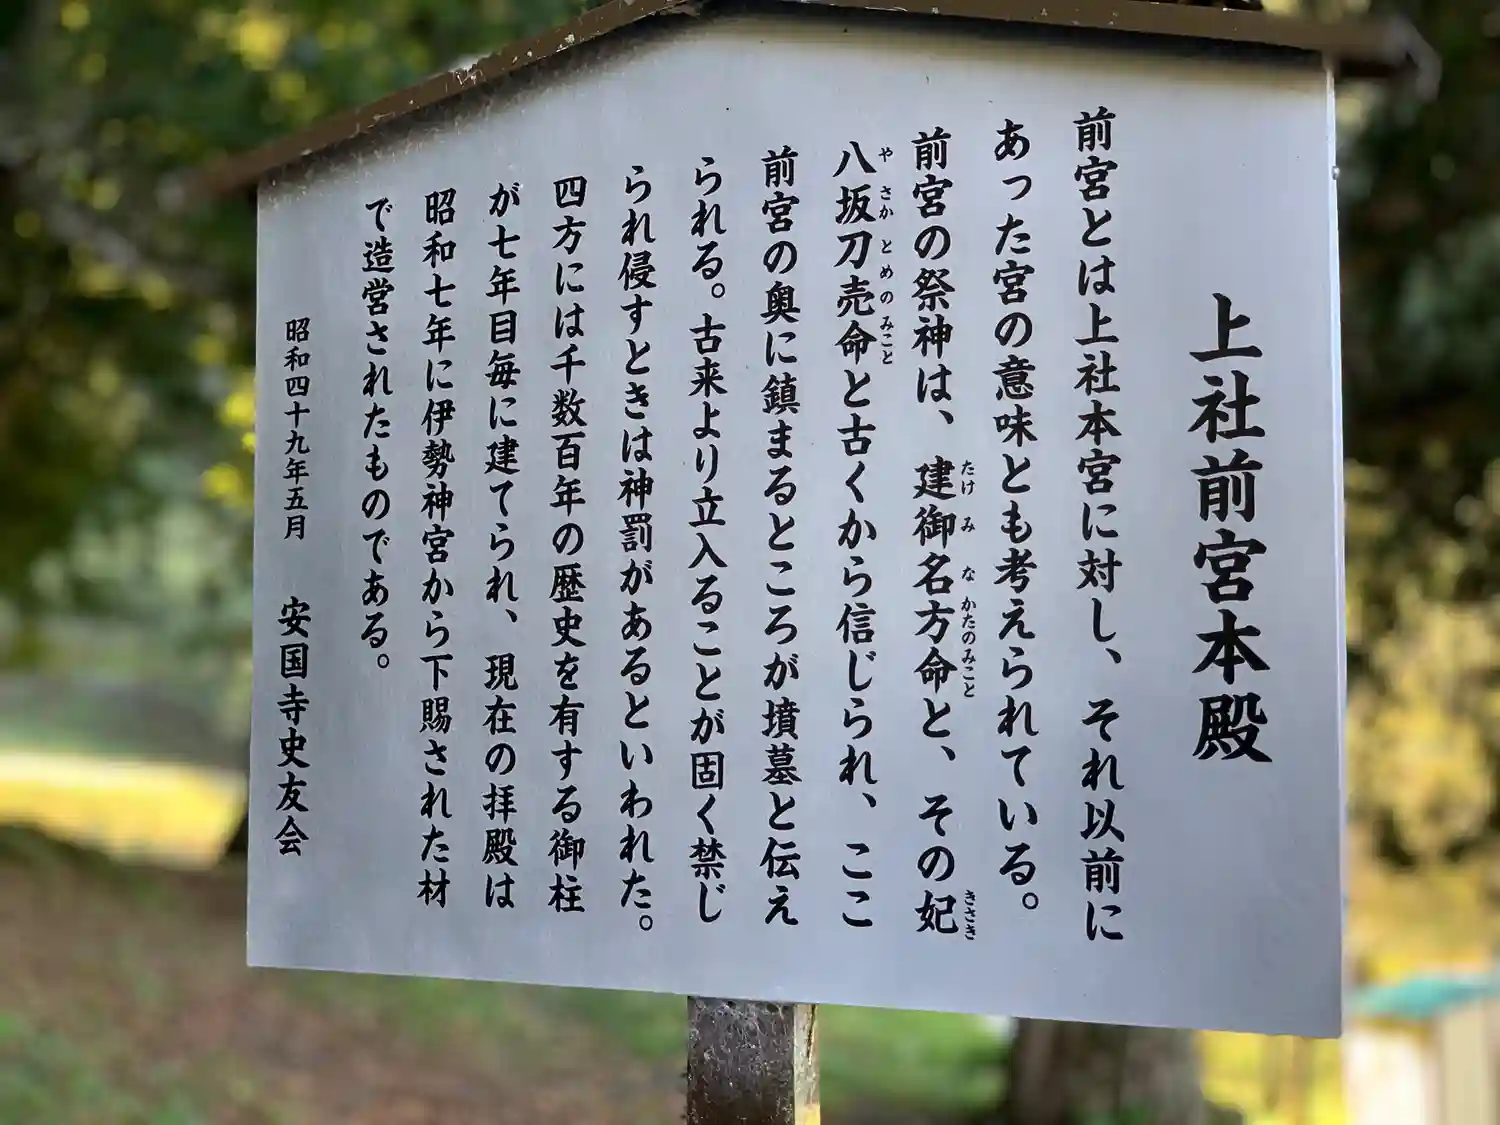 上社前宮本殿
前宮とは上社本宮に対し、それ以前に
あった宮の意味とも考えられている。
前宮の祭神は、建御名方命と、その妃
たけみなかたのみこと
きさき
八坂刀売命と古くから信じられ、ここ
やさかとめのみこと
前宮の奥に鎮まるところが墳墓と伝え
られる。古来より立入ることが固く禁じ
られ侵すときは神罰があるといわれた。
四方には千数百年の歴史を有する御柱
が七年目毎に建てられ、現在の拝殿は
昭和七年に伊勢神宮から下賜された材
で造営されたものである。
昭和四十九年五月　安国寺史友会